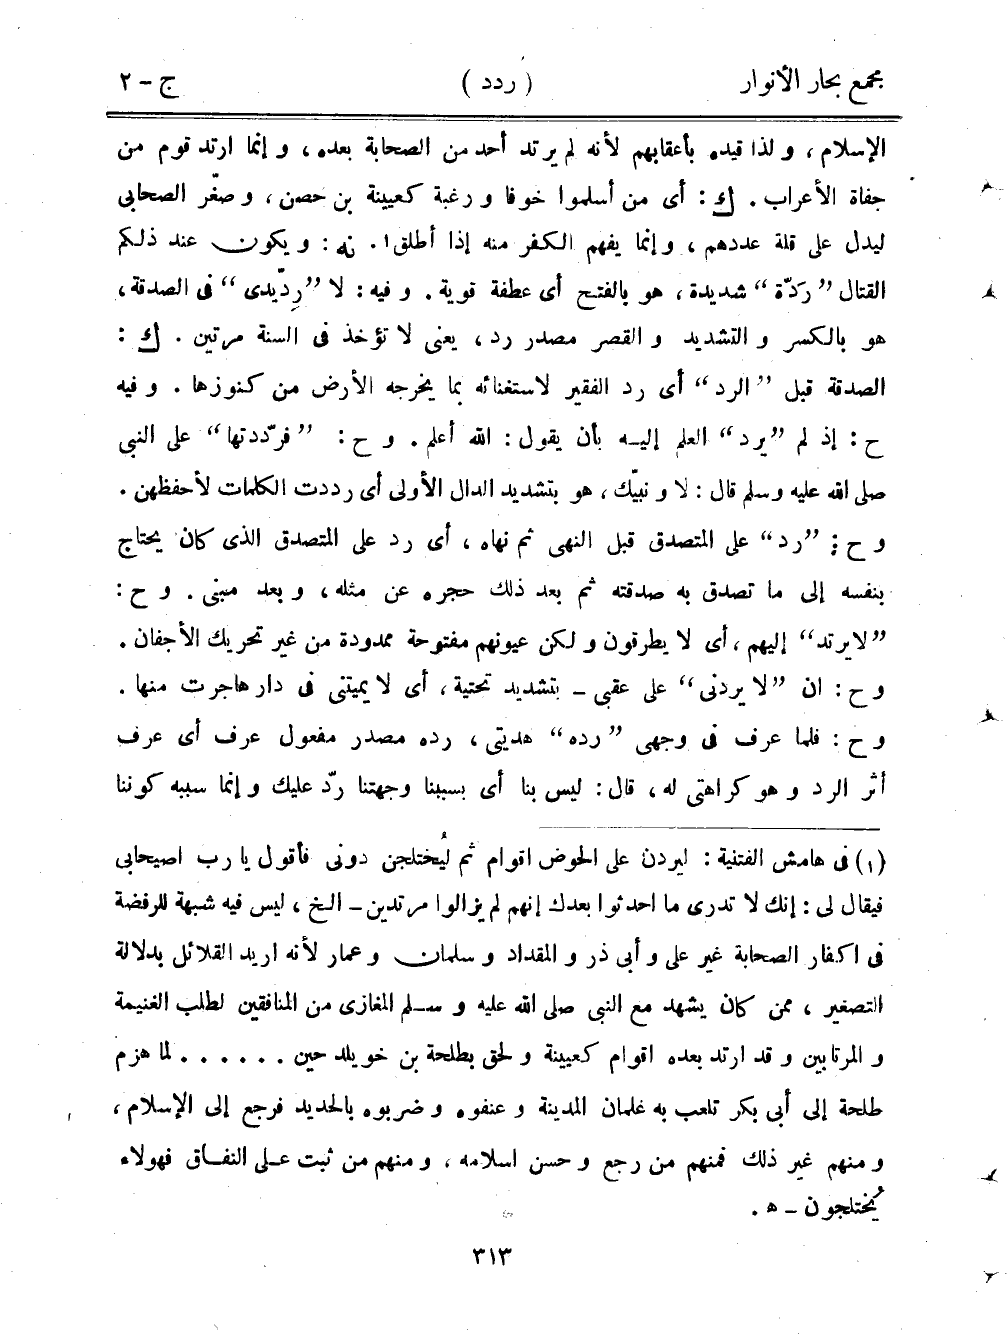 مجمع بحار الأنوار ( ردد ) ج - ٢
الإسلام، و لذا قيده بأعقابهم لأنه لم يرتد أحد من الصحابة بعده، و إنما ارتد قوم من
جفاة الأعراب. ك: أى من أسلموا خوفا و رغبة كعيينة بن حصن، و صغّر الصحابى
ليدل على قلة عددهم، و إنما يفهم الكفر منه إذا أطلق١. نه: و يكون عند ذلكم
القتال ”رَدّة“ شديدة، هو بالفتح أى عطفة قوية. و فيه: لا ”رِدّيدى“ فى الصدقة،
هو بالكسر و التشديد و القصر مصدر رد، يعنى لا تؤخذ فى السنة مرتين. ك:
الصدقة قبل ”الرد“ أى رد الفقير لاستغنائه بما يخرجه الأرض من كنوزها. و فيه
ح: إذ لم ”يرد“ العلم إليه بأن يقول: الله أعلم. و ح: ”فردّدتها“ على النبى
صلى الله عليه وسلم قال: لا و نبيّك، هو بتشديد الدال الأولى أى رددت الكلمات لأحفظهن.
و ح: ”رد“ على المتصدق قبل النهى ثم نهاه، أى رد على المتصدق الذى كان يحتاج
بنفسه إلى ما تصدق به صدقته ثم بعد ذلك حجره عن مثله، و بعد مبنى. و ح:
”لايرتد“ إليهم، أى لا يطرقون و لكن عيونهم مفتوحة ممدودة من غير تحريك الأجفان.
و ح: ان ”لا يردنى“ على عقبى - بتشديد تحتية، أى لا يميتنى فى دار هاجرت منها.
و ح: فلما عرف فى وجهى ”رده“ هديتى، رده مصدر مفعول عرف أى عرف
أثر الرد و هو كراهتى له، قال: ليس بنا أى بسببنا وجهتنا ردّ عليك و إنما سببه كوننا
(١) فى هامش الفتنية: ليردن على الحوض اقوام ثم ليُختلجن دونى فأقول يا رب اصيحابى
فيقال لى: إنك لا تدرى ما احدثوا بعدك إنهم لم يزالوا مرتدين - الخ، ليس فيه شبهة للرفضة
فى اكفار الصحابة غير على و أبى ذر و المقداد و سلمان و عمار لأنه اريد القلائل بدلالة
التصغير، ممن كان يشهد مع النبى صلى الله عليه و سلم المغازى من المنافقين لطلب الغنيمة
و المرتابين و قد ارتد بعده اقوام كعيينة و لحق بطلحة بن خويلد حين . . . . . . لما هزم
طلحة إلى أبى بكر تلعب به غلمان المدينة و عنفوه و ضربوه بالحديد فرجع إلى الإسلام،
و منهم غير ذلك فمنهم من رجع و حسن اسلامه، و منهم من ثبت على النفاق فهولاء
يُختلجون - ه.
٣١٣